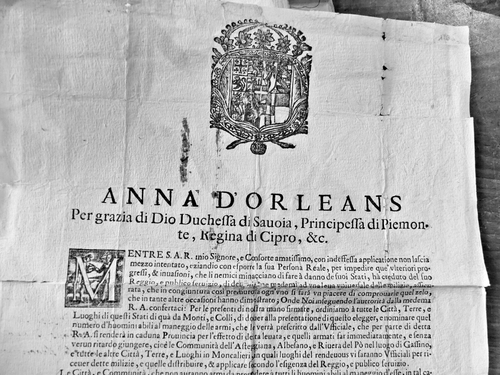 ANNA D'ORLEANS
Per grazia di Dio Duchessa di Sauoia, Principessa di Piemon-
te, Regina di Cipro, &c.
MENTRE S.A.R. mio Signore, e Consorte amatissimo, con indefessa applicatione non lascia
mezzo intentato, etiandio con esporre la sua Persona Reale, per impedire que' vlteriori pro-
gressi, & inuasioni, che li nemici minacciano di fare à danno de' suoi Stati, hà creduto del suo
Reggio, e publico seruizio, di
rata, che in congiuntura così premurosa ogn'vno si farà vn piacere di comprouarle quel zelo,
che in tante altre occasioni hanno dimostrato; Onde Noi inseguendo l'autorità dalla medema
R.A. confertaci: Per le presenti di nostra mano firmate, ordiniamo à tutte le Città, Terre, e
Luoghi di questi Stati di quà da Monti, e Colli, di douer alla presentatione di questo eleggere, e nominare quel
numero d'huomini abili al maneggio delle armi, che le verrà prescritto dall'Vfficiale, che per parte di detta
R.A. si renderà in caduna Prouincia per l'effetto di detta leuata, e quelli armati far immediatamente, e senza
verun ritardo giungere, cioè le Communità dell'Astegiana, Albesano, e Riuera del Pò nel luogo di Gassino,
e tutte le altre Città, Terre, e Luoghi in Moncalieri, à quali luoghi del rendeuous vi saranno Vfficiali per ri-
ceuer dette milizie, e quelle distribuire, & applicare secondo l'esigenza del Reggio, e publico seruizio.
Le Città, e Communità, che non auranno